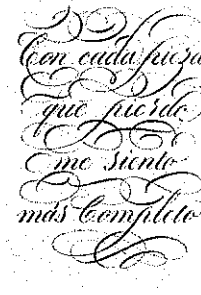 Con cada pieza
que pierdo
me siento
más Completo